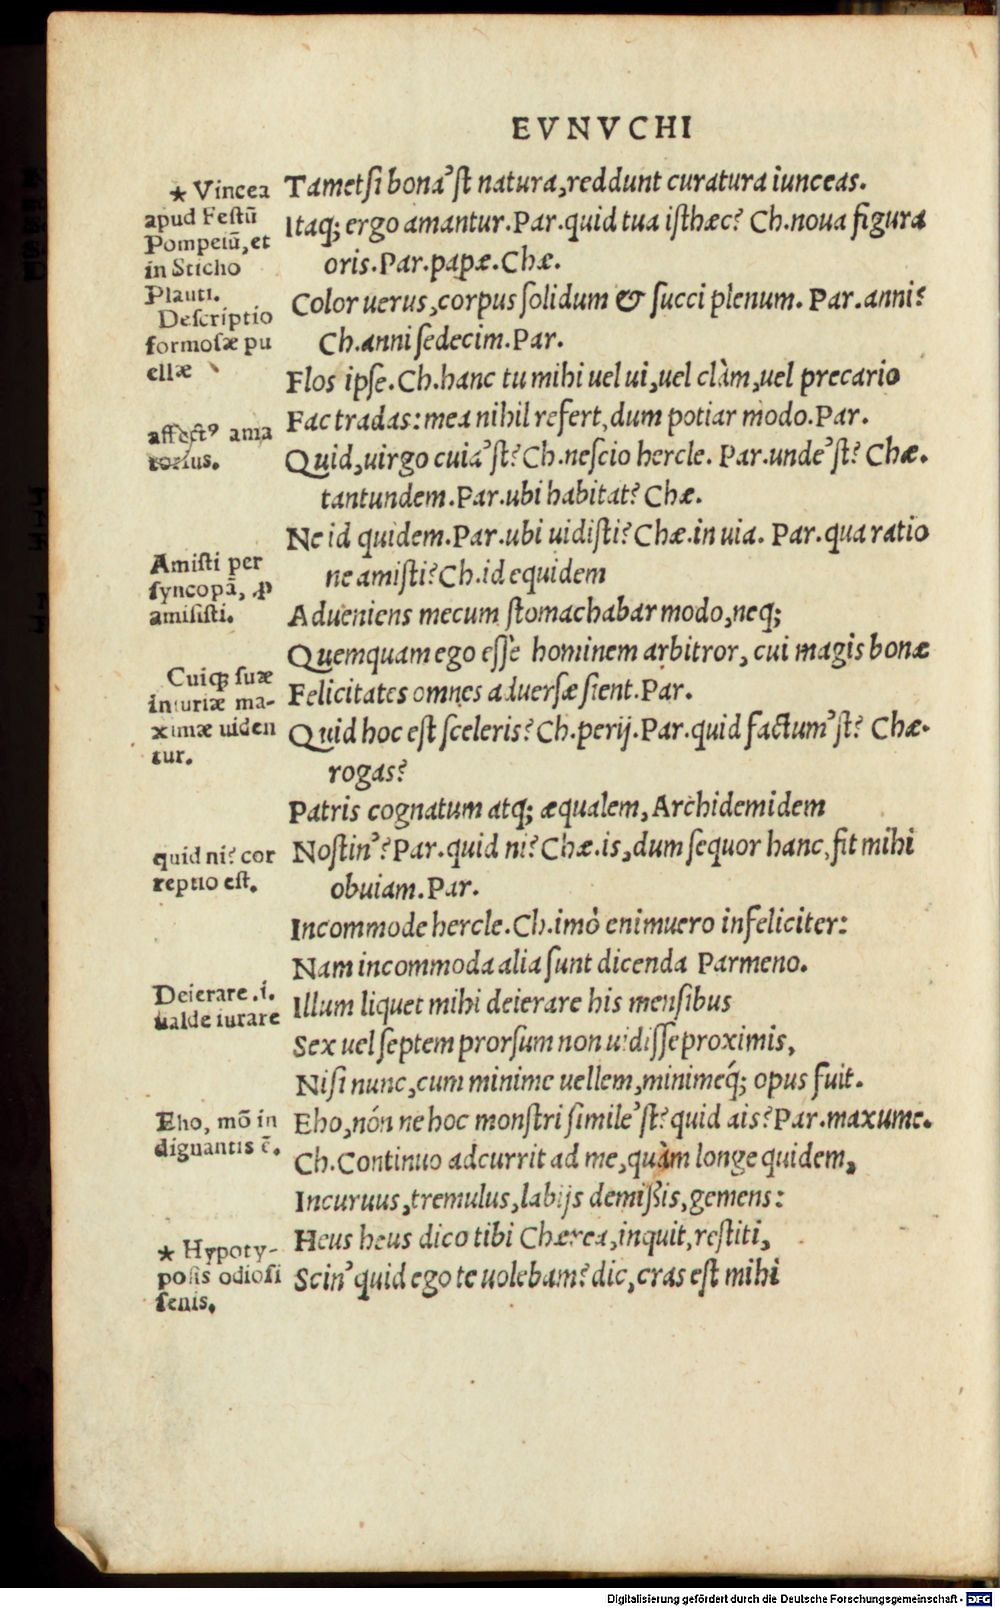 EVNVCHI
★ Vincea
apud Festũ
Pompeiũ, et
in Sticho
Plauti.
Descriptio
formosæ pu
ellæ
affectꝰ ama
torius.
Amisti per
syncopã, ꝓ
amisisti.
Cuiqꝫ suæ
iniuriæ ma-
ximæ uiden
tur.
quid ni? cor
reptio est.
Deierare .i.
ualde iurare
Eho, mõ in
dignantis ẽ.
★ Hypoty-
posis odiosi
senis.
Tametsi bona'st natura, reddunt curatura iunceas.
Itaqꝫ ergo amantur. Par. quid tua isthæc? Ch. noua figura
oris. Par. papæ. Chæ.
Color uerus, corpus solidum & succi plenum. Par. anni?
Ch. anni sedecim. Par.
Flos ipse. Ch. hanc tu mihi uel ui, uel clàm, uel precario
Fac tradas: mea nihil refert, dum potiar modo. Par.
Quid, uirgo cuia'st? Ch. nescio hercle. Par. unde'st? Chæ.
tantundem. Par. ubi habitat? Chæ.
Ne id quidem. Par. ubi uidisti? Chæ. in uia. Par. qua ratio
ne amisti? Ch. id equidem
Adueniens mecum stomachabar modo, neqꝫ
Quemquam ego esse hominem arbitror, cui magis bonæ
Felicitates omnes aduersæ sient. Par.
Quid hoc est sceleris? Ch. perij. Par. quid factum'st? Chæ.
rogas?
Patris cognatum atqꝫ æqualem, Archidemidem
Nostin'? Par. quid ni? Chæ. is, dum sequor hanc, fit mihi
obuiam. Par.
Incommode hercle. Ch. imò enimuero infeliciter:
Nam incommoda alia sunt dicenda Parmeno.
Illum liquet mihi deierare his mensibus
Sex uel septem prorsum non uidisse proximis,
Nisi nunc, cum minime uellem, minimeq́ꝫ opus fuit.
Eho, nón ne hoc monstri simile'st? quid ais? Par. maxume.
Ch. Continuo adcurrit ad me, quàm longe quidem,
Incuruus, tremulus, labijs demißis, gemens:
Heus heus dico tibi Chærea, inquit, restiti,
Scin' quid ego te uolebam? dic, cras est mihi
Digitalisierung gefördert durch die Deutsche Forschungsgemeinschaft - DFG